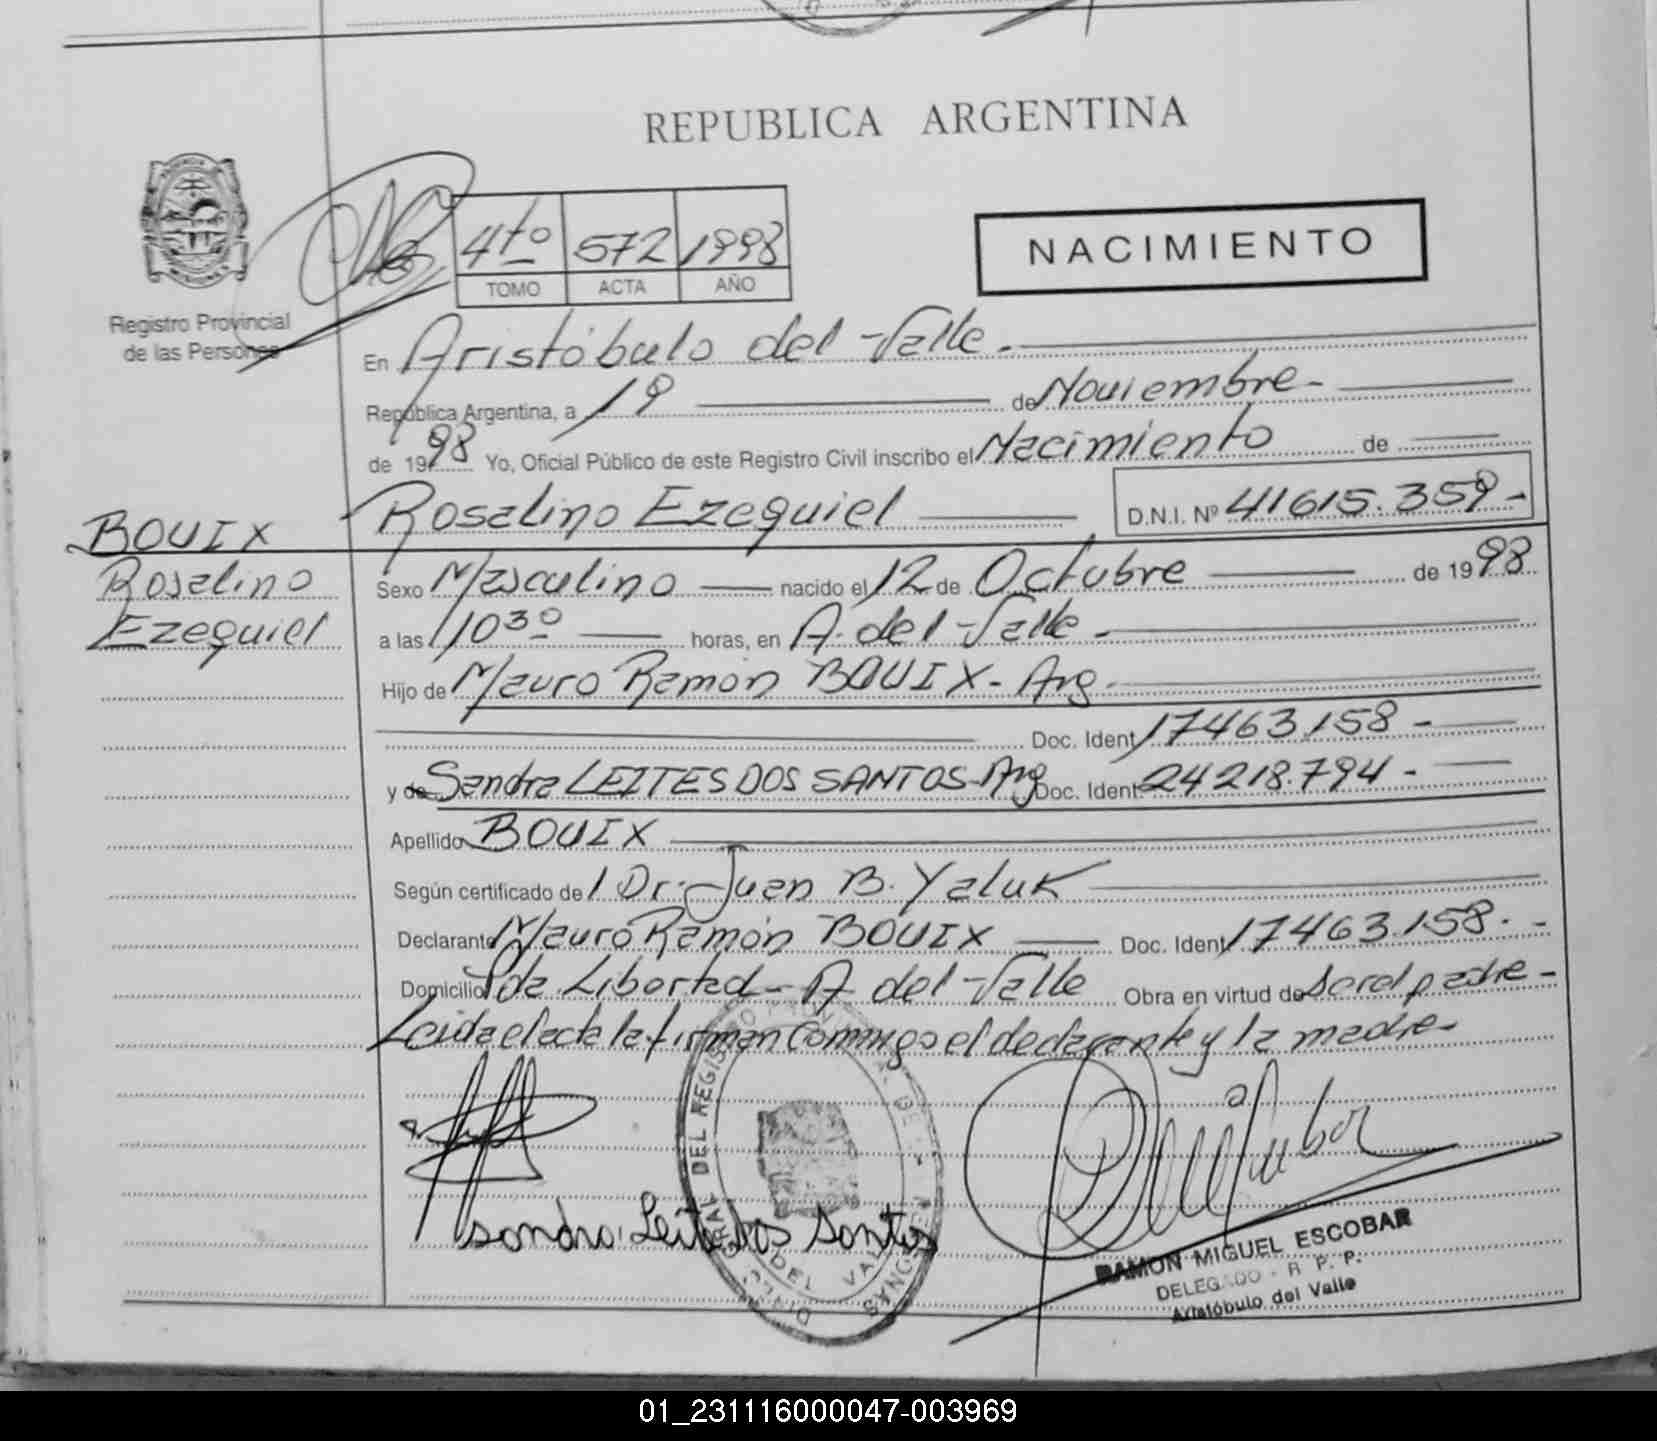 REPUBLICA ARGENTINA
Registro Provincial
de las Personas
4to 572 1998
TOMO ACTA AÑO
NACIMIENTO
En Aristóbulo del Valle.
República Argentina, a 19 de Noviembre-
de 1998 Yo, Oficial Público de este Registro Civil inscribo el Nacimiento de
Rosalino Ezequiel D.N.I. Nº 41615.359-
BOUIX
Rosalino
Ezequiel
Sexo Masculino nacido el 12 de Octubre de 1998
a las 1030 horas, en A. del Valle-
Hijo de Mauro Ramón BOUIX- Arg.
Doc. Ident. 17463.158-
y de Sandra LEITES DOS SANTOS-Arg Doc. Ident. 24218.794-
Apellido BOUIX
Según certificado de Dr. Juan B. Yaluk
Declarante Mauro Ramón BOUIX Doc. Ident. 17463.158.-
Domicilio Pda Libertad- A del Valle Obra en virtud de Ser el padre-
Leida el acta la firman conmigo el declarante y la madre-
Sandra Leites Dos Santos
DEL REGISTRO
DEL VALLE
RAMON MIGUEL ESCOBAR
DELEGADO - R. P. P.
Aristóbulo del Valle
01_231116000047-003969